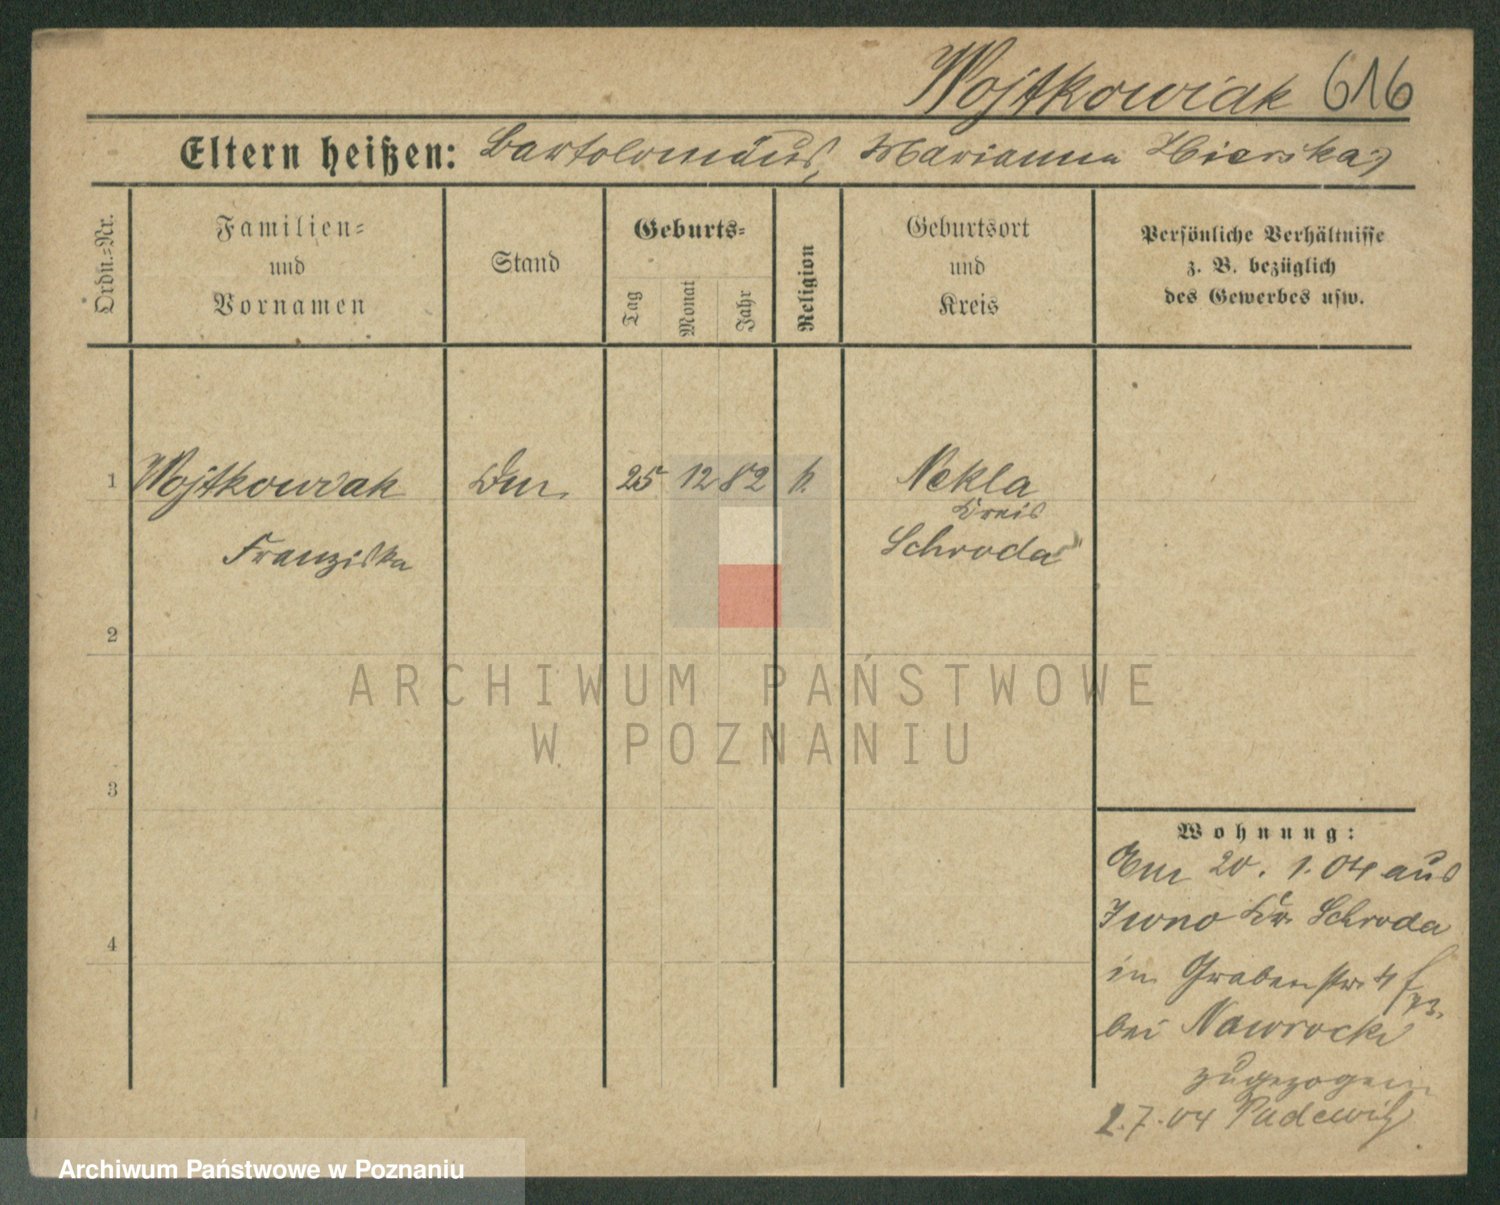 Wojtkowiak 616
Eltern heißen: Bartolomäus, Marianna
Ordn.-Nr.
Familien-
und
Vornamen
Stand
Geburts-
Tag
Monat
Jahr
Religion
Geburtsort
und
Kreis
Persönliche Verhältnisse
z. B. bezüglich
des Gewerbes usw.
1 Wojtkowiak 25 12 82 k. Nekla
Kreis
Franziska Schroda
2
ARCHIWUM PAŃSTWOWE
W POZNANIU
3
Wohnung:
Am 20. 1. 04 aus
Iwno Kr. Schroda
4
in Grabenstr. 4
bei Nawrocki
zugezogen
2.7.04 Pudewitz
Archiwum Państwowe w Poznaniu